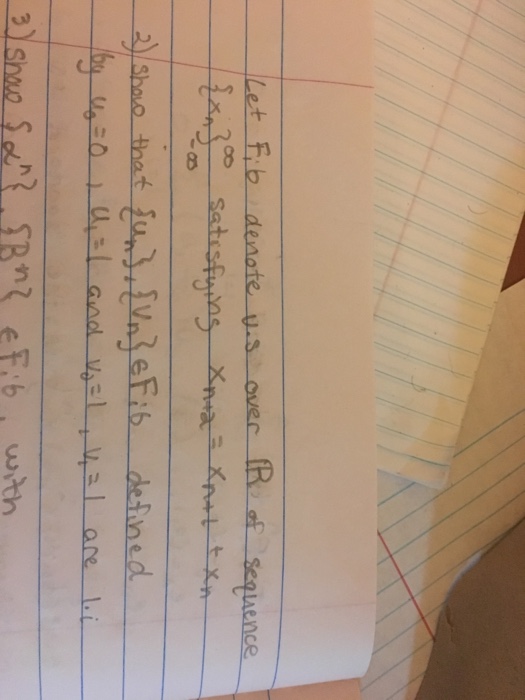 Let Fib denote v.s over ℝ of sequence
{xₙ}^∞_-∞ satisfying xₙ₊₂ = xₙ₊₁ + xₙ
2) show that {uₙ}, {vₙ} ∈ Fib defined
by u₀=0, u₁=1 and v₀=1, v₁=1 are l.i
3) show {αⁿ}, {βⁿ} ∈ Fib, with